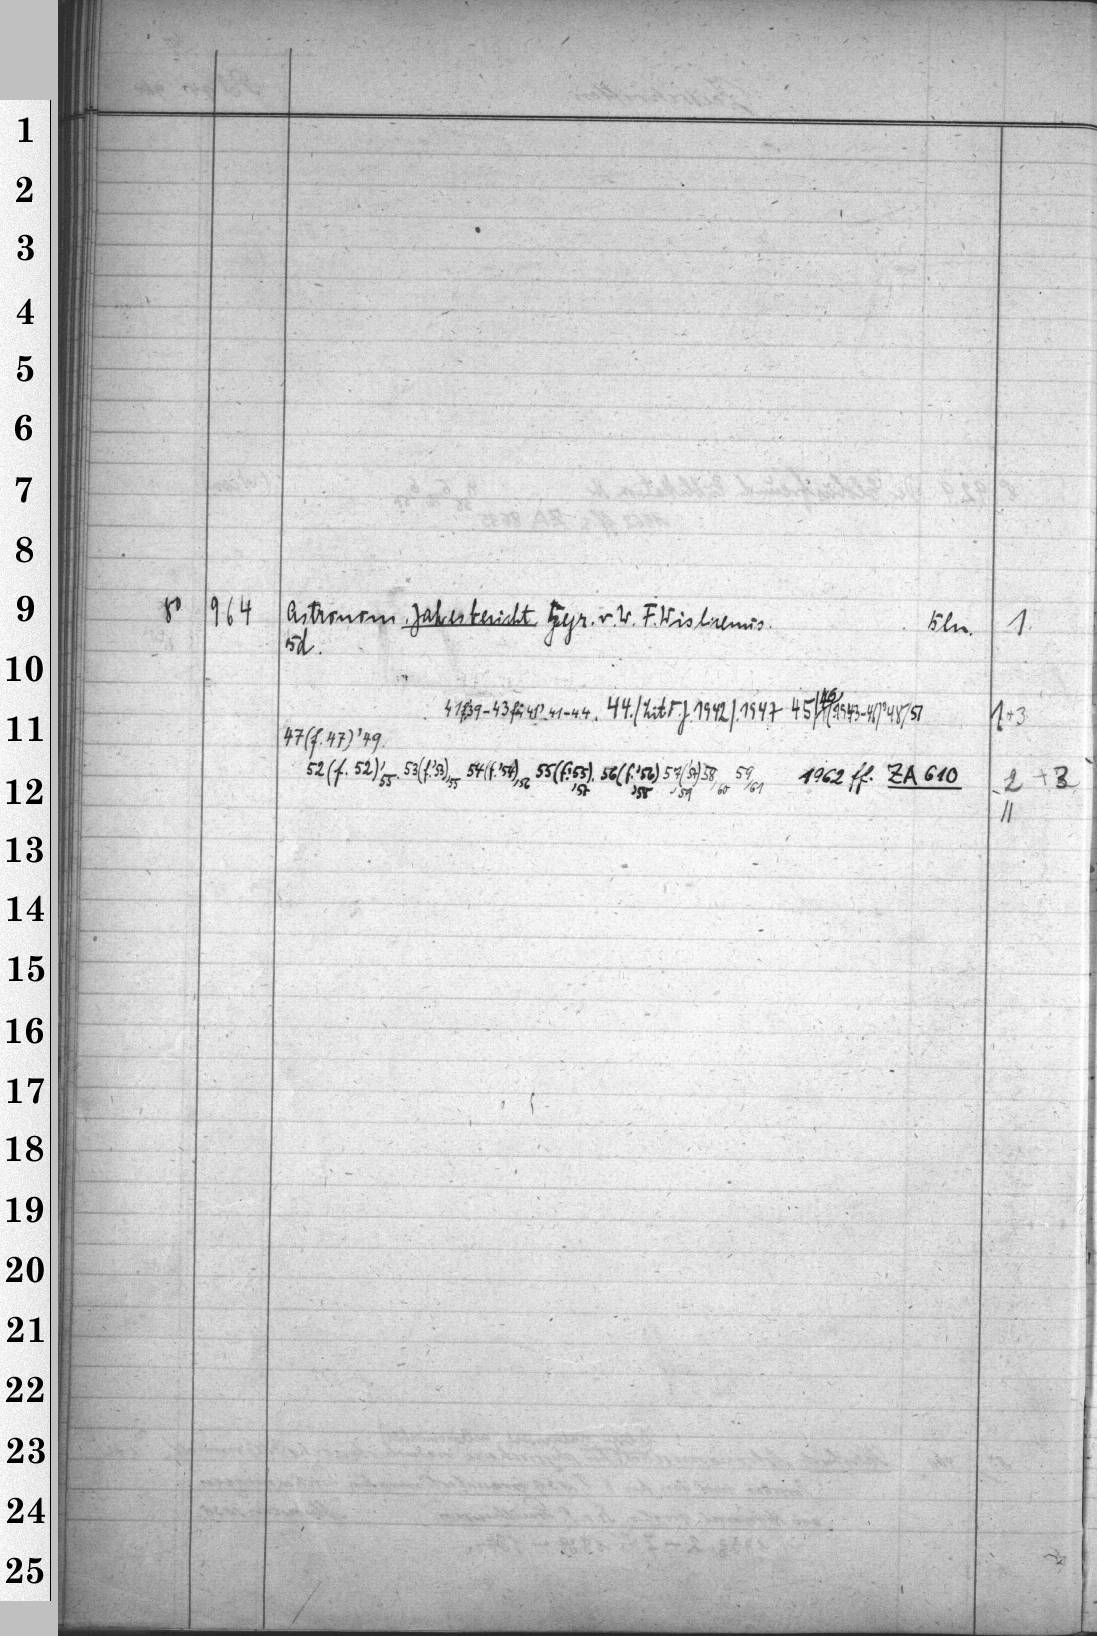 1
2
3
4
5
6
7
8
9
8° 964 Astronom. Jahresbericht. Hrsg. v. W. F. Wislicenus. Bln. 1.
Bd.
10
44. 1942/.1947 1+3
11
47(f.47)'49.
52(f. 52)'55. 53(f.'53),55 54(f.'54),56 55(f.'55),57 56(f.'56),58 57(57),59 58/60 59/61 1962 ff. ZA 610 2 + 3
12
13
14
15
16
17
18
19
20
21
22
23
24
25